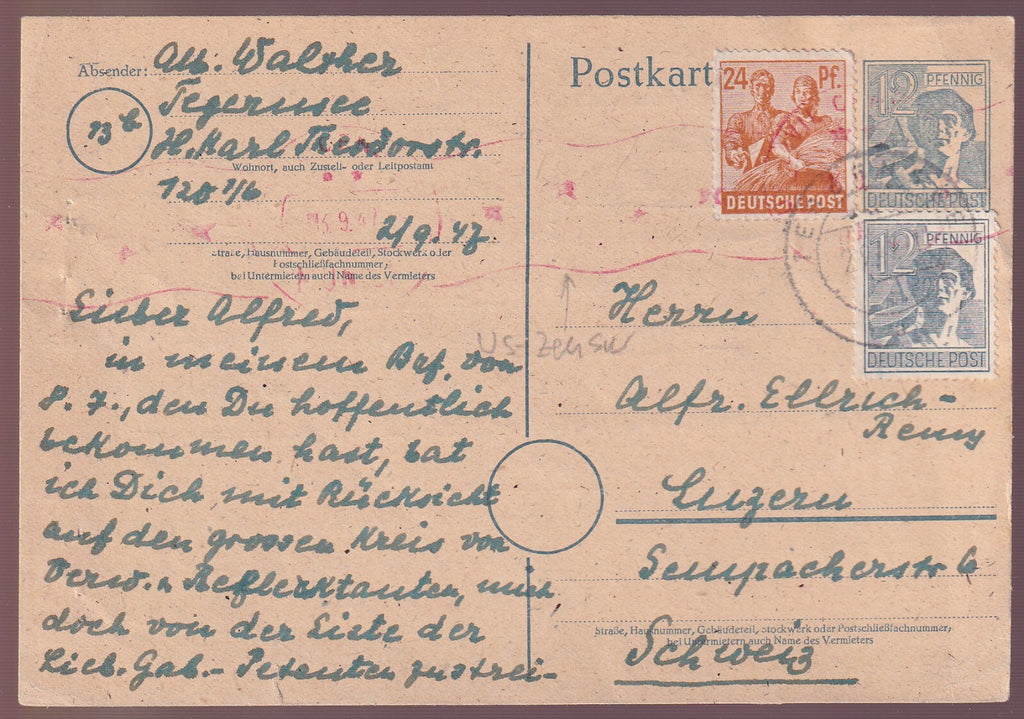 Absender: Alb. Walther
Tegernsee
13b
H. Karl Theodorstr.
Wohnort, auch Zustell- oder Leitpostamt
120 1/6
2/9.47
Straße, Hausnummer, Gebäudeteil, Stockwerk oder
Postschließfachnummer;
bei Untermietern auch Name des Vermieters
Lieber Alfred,
in meinem Brf. von
8.7., den Du hoffentlich
bekommen hast, bat
ich Dich mit Rücksicht
auf den grossen Kreis von
Verw. u Reflecktanten, mich
doch von der Liste der
Lieb. Gab.-Petenten zu strei-
Postkart
24 Pf.
DEUTSCHE POST
12 PFENNIG
DEUTSCHE POST
12 PFENNIG
DEUTSCHE POST
US-Zensur
Herrn
Alfr. Ellrich-
Remy
Luzern
Sempacherstr 6
Straße, Hausnummer, Gebäudeteil, Stockwerk oder Postschließfachnummer;
bei Untermietern auch Name des Vermieters
Schweiz